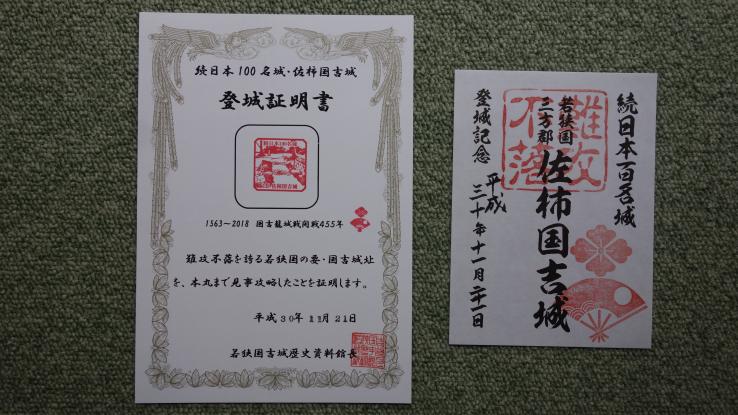 続日本100名城・佐柿国吉城
登城証明書
続日本100名城
佐柿国吉城
1563～2018 国吉籠城戦開戦455年
難攻不落を誇る若狭国の要・国吉城址
を、本丸まで見事攻略したことを証明します。
平成30年11月21日
若狭国吉城歴史資料館長
続日本百名城
難攻
不落
若狭国
三方郡
佐柿国吉城
登城記念
平成三十年十一月二十一日